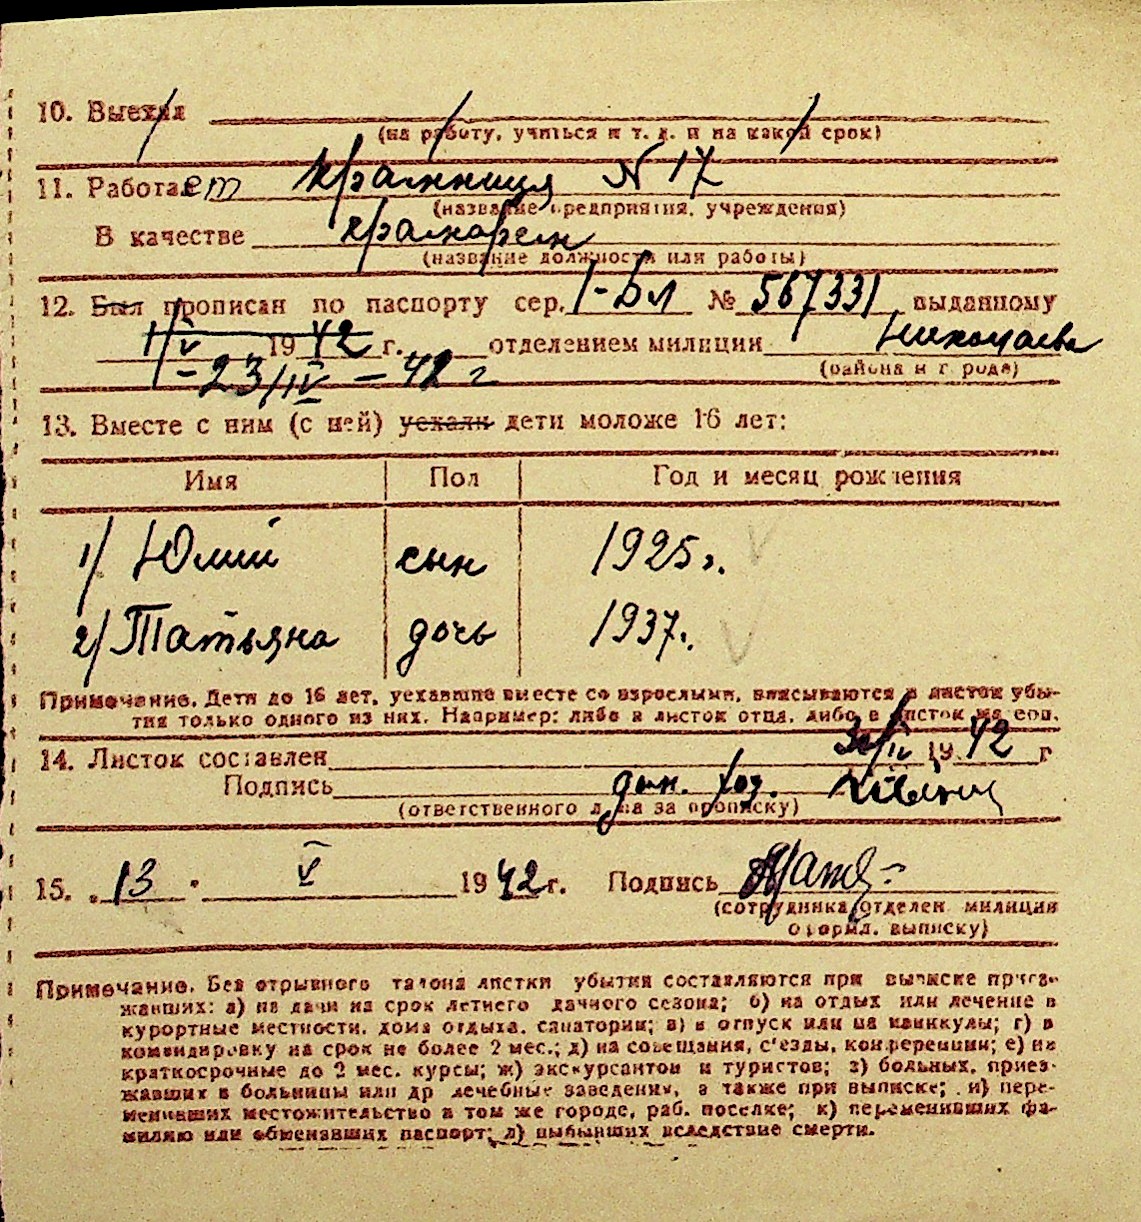 10. Выехал
(на работу, учиться и т. д. и на какой срок)
11. Работает крамниця N 17
(название предприятия, учреждения)
В качестве
(название должности или работы)
12. Был прописан по паспорту сер. № 567331 выданному
1/V 1942 г. отделением милиции Николаева
(района и города)
-23/IV - 42 г
13. Вместе с ним (с ней) уехали дети моложе 16 лет:
Имя Пол Год и месяц рождения
1/ Юлий сын 1925 г.
2/ Татьяна дочь 1937.
Примечание. Дети до 16 лет, уехавшие вместе со взрослыми, вписываются в листок убы-
тия только одного из них. Например: либо в листок отца, либо в листок матери.
14. Листок составлен 30/IV 1942 г
Подпись
(ответственного лица за прописку)
15. 13 V 1942 г. Подпись
(сотрудника отделен. милиции
оформл. выписку)
Примечание. Без отрывного талона листки убытия составляются при выписке приез-
жавших: а) на дачи на срок летнего дачного сезона; б) на отдых или лечение в
курортные местности, дома отдыха, санатории; в) в отпуск или на каникулы; г) в
командировку на срок не более 2 мес.; д) на совещания, с'езды, конференции; е) на
краткосрочные до 2 мес. курсы; ж) экскурсантов и туристов; з) больных, приез-
жавших в больницы или др лечебные заведения, а также при выписке; и) пере-
менивших местожительство в том же городе, раб. поселке; к) переменивших фа-
милию или обменявших паспорт; л) выбывших вследствие смерти.